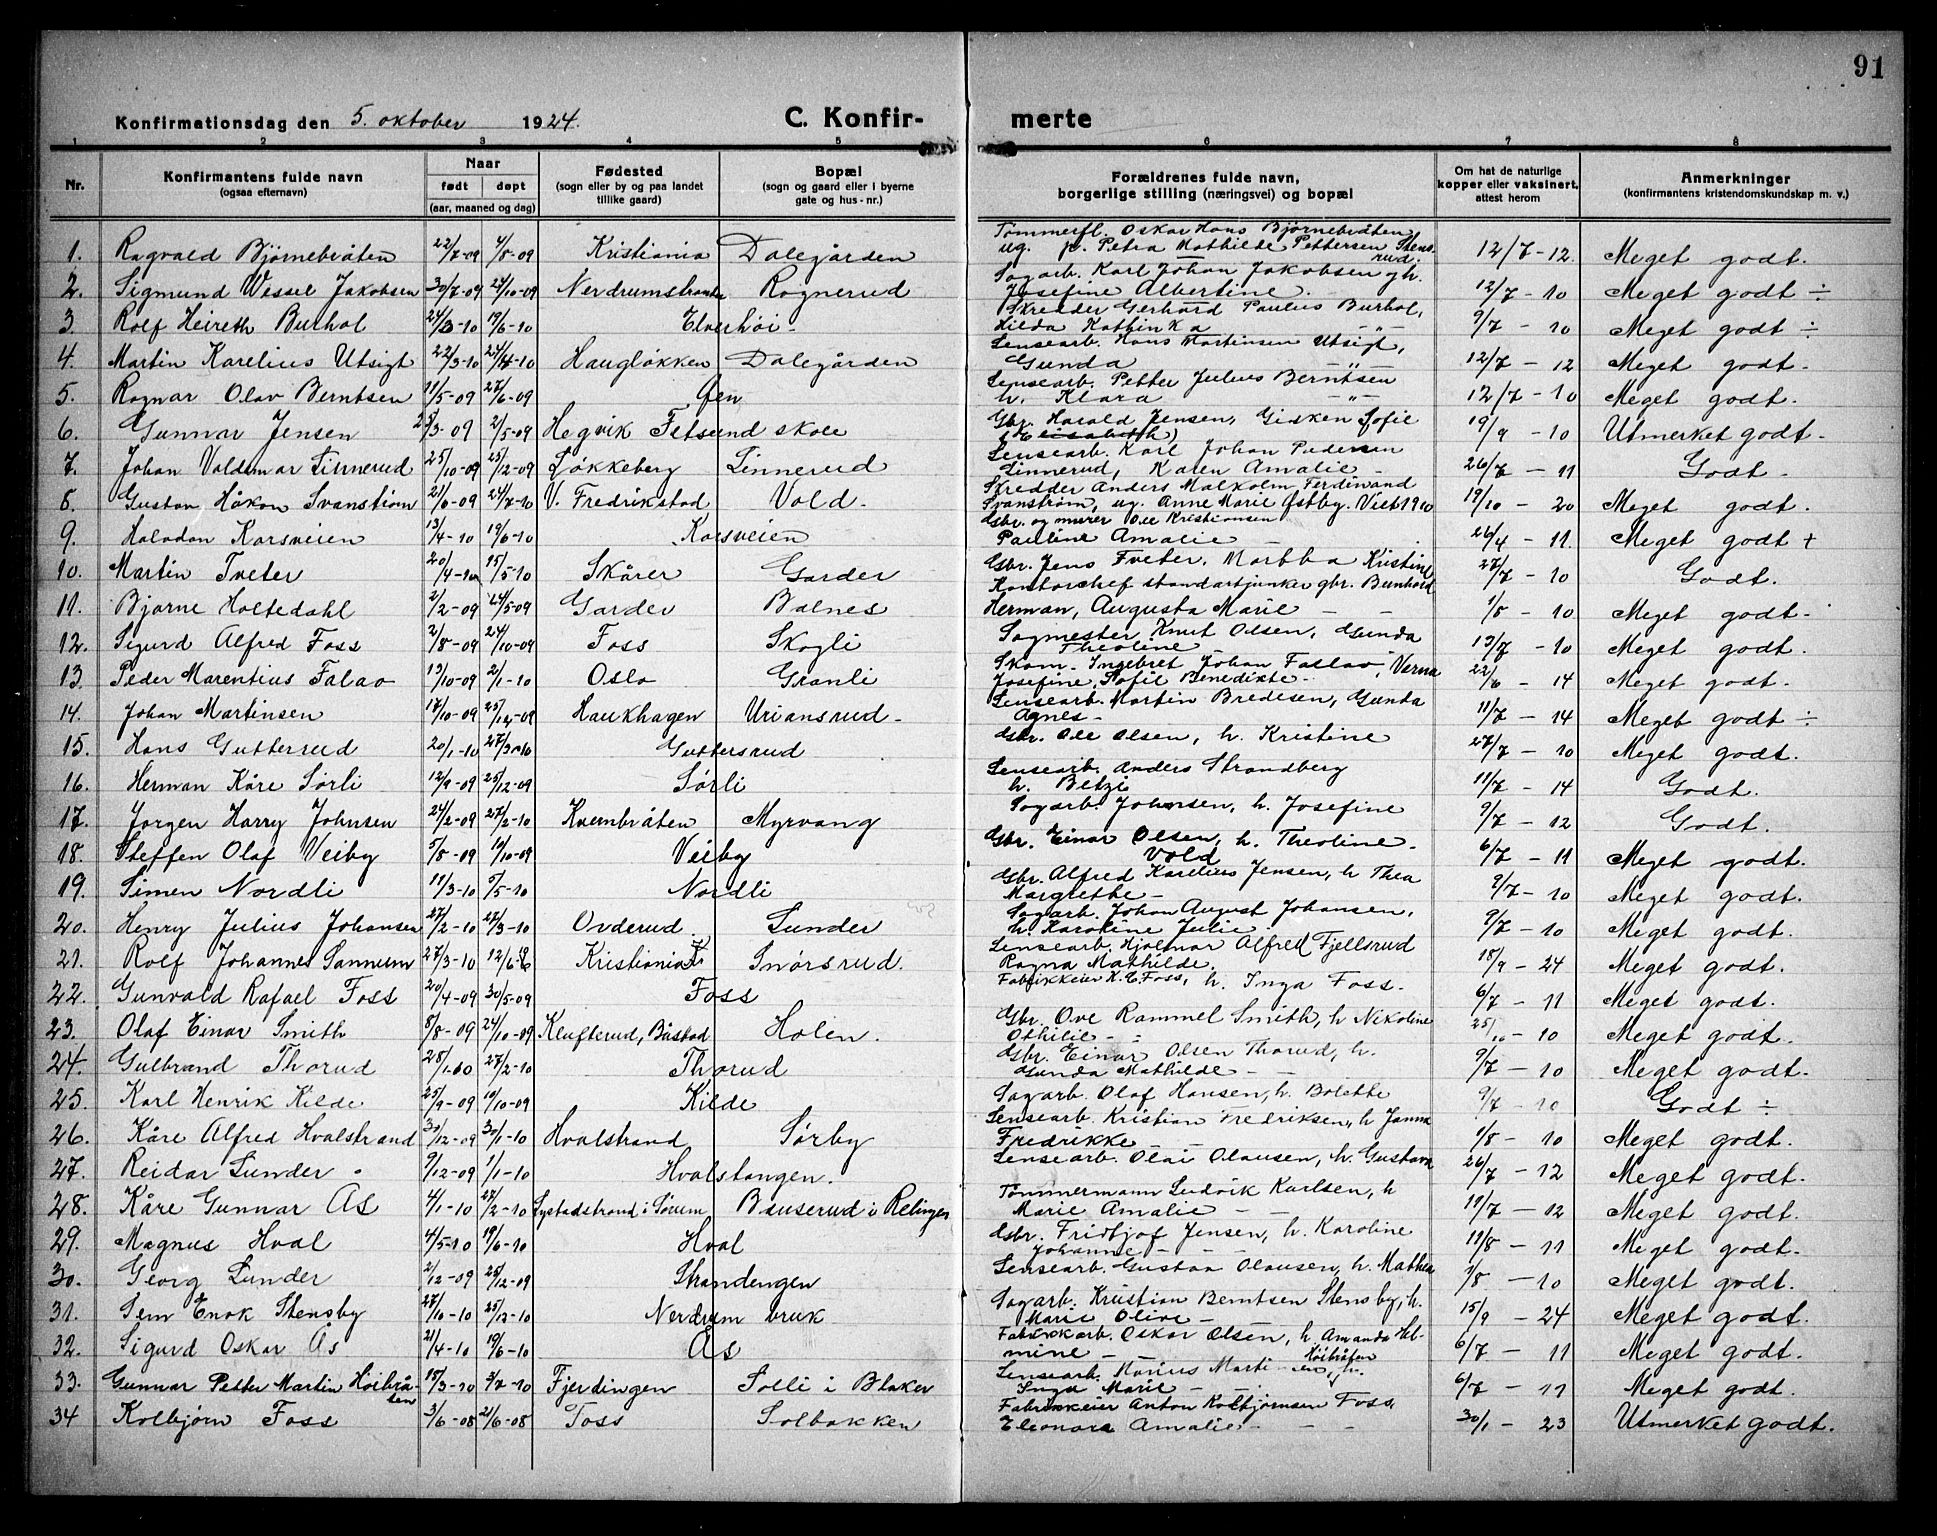 91
Konfirmationsdag den 5. oktober 1924. C. Konfir- merte
1 2 3 4 5 6 7 8
Nr. Konfirmantens fulde navn (ogsaa efternavn) Naar født døpt (aar, maaned og dag) Fødested (sogn eller by og paa landet tillike gaard) Bopæl (sogn og gaard eller i byerne gate og hus-nr.) Forældrenes fulde navn, borgerlige stilling (næringsvei) og bopæl Om hat de naturlige kopper eller vaksinert, attest herom Anmerkninger (konfirmantens kristendomskundskap m. v.)
1. Ragvald Bjørnebråten 22/7-09 4/8-09 Kristiania Dalegården Tømmerfl. Oskar Hans Bjørnebråten ug. p. Petra Mathilde Pettersen Stensrud. 12/7-12. Meget godt.
2. Sigmund Wessel Jakobsen 30/7-09 24/10-09 Nerdrumstranda Rognerud Sagarb. Karl Johan Jakobsen gh. Josefine Albertine. 12/7-10 Meget godt ÷
3. Rolf Heireth Burhol 24/3-10 19/6-10 Elverhøi- Skredder Gerhard Paulius Burhol, Hilda Kathinka -"- 9/7-10 Meget godt ÷
4. Martin Karelius Utsigt 22/3-10 24/4-10 Haugløkken Dalegården Lensearb. Hans Martinsen Utsigt, Gunda -"- 12/7-12 Meget godt.
5. Ragnar Olav Berntsen 11/5-09 27/6-09 Qen Lensearb. Petter Julius Berntsen h. Klara -"- 12/7-10 Meget godt.
6. Gunnar Jensen 28/3-09 2/5-09 Hegvik Fetsund skole Gbr. Harald Jensen, Gisken Sofie (Elisabeth) 19/9-10 Utmerket godt.
7. Johan Valdemar Linnerud 25/10-09 25/12-09 Løkkeberg Linnerud Lensearb. Karl Johan Pedersen Linnerud, Karen Amalie - 26/7-11 Godt.
8. Gustav Håkon Svanstrøm 21/6-09 24/7-10 V. Fredrikstad Vold. Skredder Anders Malkolm Ferdinand Svanstrøm, ug. Anne Marie Østby. Viet 1910 19/10-20 Meget godt.
9. Halvdan Korsveien 13/4-10 19/6-10 Korsveien Gbr. og murer Ole Kristiansen Pauline Amalie - 26/4-11. Meget godt +
10. Martin Tveter 20/4-10 15/5-10 Skårer Garder Gbr. Jens Tveter. Marthea Kristine 27/7-10 Godt.
11. Bjarne Holtedahl 2/2-09 24/5-09 Garder Balnes Kontorchef standartjunker gbr. Bernhard Herman, Augusta Marie - - 1/8-10 Meget godt.
12. Sigurd Alfred Foss 2/8-09 24/10-09 Foss Skogli Sagmester Knut Olsen, Gunda Theoline - 13/7-10 Meget godt.
13. Peder Marentius Falao 13/10-09 2/1-10 Oslo Granli Skom. Ingebret Johan Faslao, Verna Josefine, Sofie Benedikte - 22/6-14 Meget godt.
14. Johan Martinsen 17/10-09 25/12-09 Haukhagen Uriansrud - Lensearb. Martin Bredesen, Gunda Agnes - 11/7-14 Meget godt ÷
15. Hans Guttersrud 20/1-10 27/3-10 Guttersrud Gbr. Ole Olsen, h. Kristine 27/7-10 Meget godt.
16. Herman Kåre Sørli 12/9-09 25/12-09 Sørli Lensearb. Anders Strandberg h. Betzi 11/7-14 Godt.
17. Jørgen Harry Johnsen 24/12-09 27/2-10 Kvernbråten Myrvang Sagarb. Johnsen, h. Josefine 9/7-12 Godt.
18. Steffen Olaf Veiby 5/8-09 10/10-09 Veiby Gbr. Einar Olsen, h. Theoline. Vold 6/7-11 Meget godt.
19. Simen Nordli 11/3-10 5/5-10 Nordli Gbr. Alfred Karelius Jensen, h Thea Margrethe - 9/7-10 Meget godt.
20. Henry Julius Johansen 27/2-10 27/3-10 Ovderud. Sunder Sagarb. Johan August Johansen, h. Karoline Julie. 9/7-10 Meget godt.
21. Rolf Johannes Sannum 27/3-10 12/6-10 Kristiania Snørsrud. Lensearb. Hjalmar Alfred Fjellsrud Ragna Mathilde. 18/9-24 Meget godt.
22. Gunvald Rafael Foss 20/4-09 30/5-09 Foss Fabrikkeier K. E. Foss, h. Inga Foss. 6/7-11 Meget godt.
23. Olaf Einar Smith 8/8-09 24/10-09 Klufterud, Båstad Holen. Gbr. Ove Rammel Smith, h Nikoline Othilie - - 25/10-10 Meget godt.
24. Gulbrand Thorud 28/1-10 27/2-10 Thorud Gbr. Einar Olsen Thorud, h. Gunda Mathilde - - 9/7-10 Meget godt.
25. Karl Henrik Kilde 25/9-09 10/10-09 Kilde Sagarb. Olaf Hansen, h. Bolette 9/7-10 Godt ÷
26. Kåre Alfred Hvalstrand 30/12-09 30/1-10 Hvalstrand Sørby Lensearb. Kristian Fredriksen, h Janna Fredrikke 1/8-10 Meget godt.
27. Reidar Lunder 9/12-09 1/1-10 Hvalstangen. Lensearb. Olai Olausen, h. Gustava 26/7-12 Meget godt.
28. Kåre Gunnar Ås 4/1-10 27/2-10 Lystadstrand i Sørum Bauserud i Relingen Tømmermann Ludvik Karlsen, h Marie Amalie - - 19/7-12 Meget godt.
29. Magnus Hval 4/5-10 19/6-10 Hval Gbr. Fridtjof Jensen, h. Karoline Johanne - - 11/8-11 Meget godt.
30. Georg Lunder 2/12-09 25/12-09 Strandengen Lensearb. Gustav Olausen, h. Mathea 1/8-10 Meget godt.
31. Sem Enok Stensby 27/10-10 25/12-10 Nerdrum bruk Sagarb. Kristian Berntsen Stensby, h. Marie Olive - 15/9-24 Meget godt.
32. Sigurd Oskar Ås 21/4-10 19/6-10 Ås Fabrikkarb. Oskar Olsen, h. Amanda Helmine - - 6/7-11 Meget godt.
33. Gunnar Petter Martin Høibråten 15/3-10 3/7-10 Fjerdingen Solli i Blaker Lensearb. Marius Martinsen Høibråten, h. Inga Marie - - 6/7-11 Meget godt.
34 Kolbjørn Foss 3/6-08 21/6-08 Foss Solbakken Fabrikkeier Anton Kolbjørnsen Foss, Eleonora Amalie - - - 30/1-23 Utmerket godt.